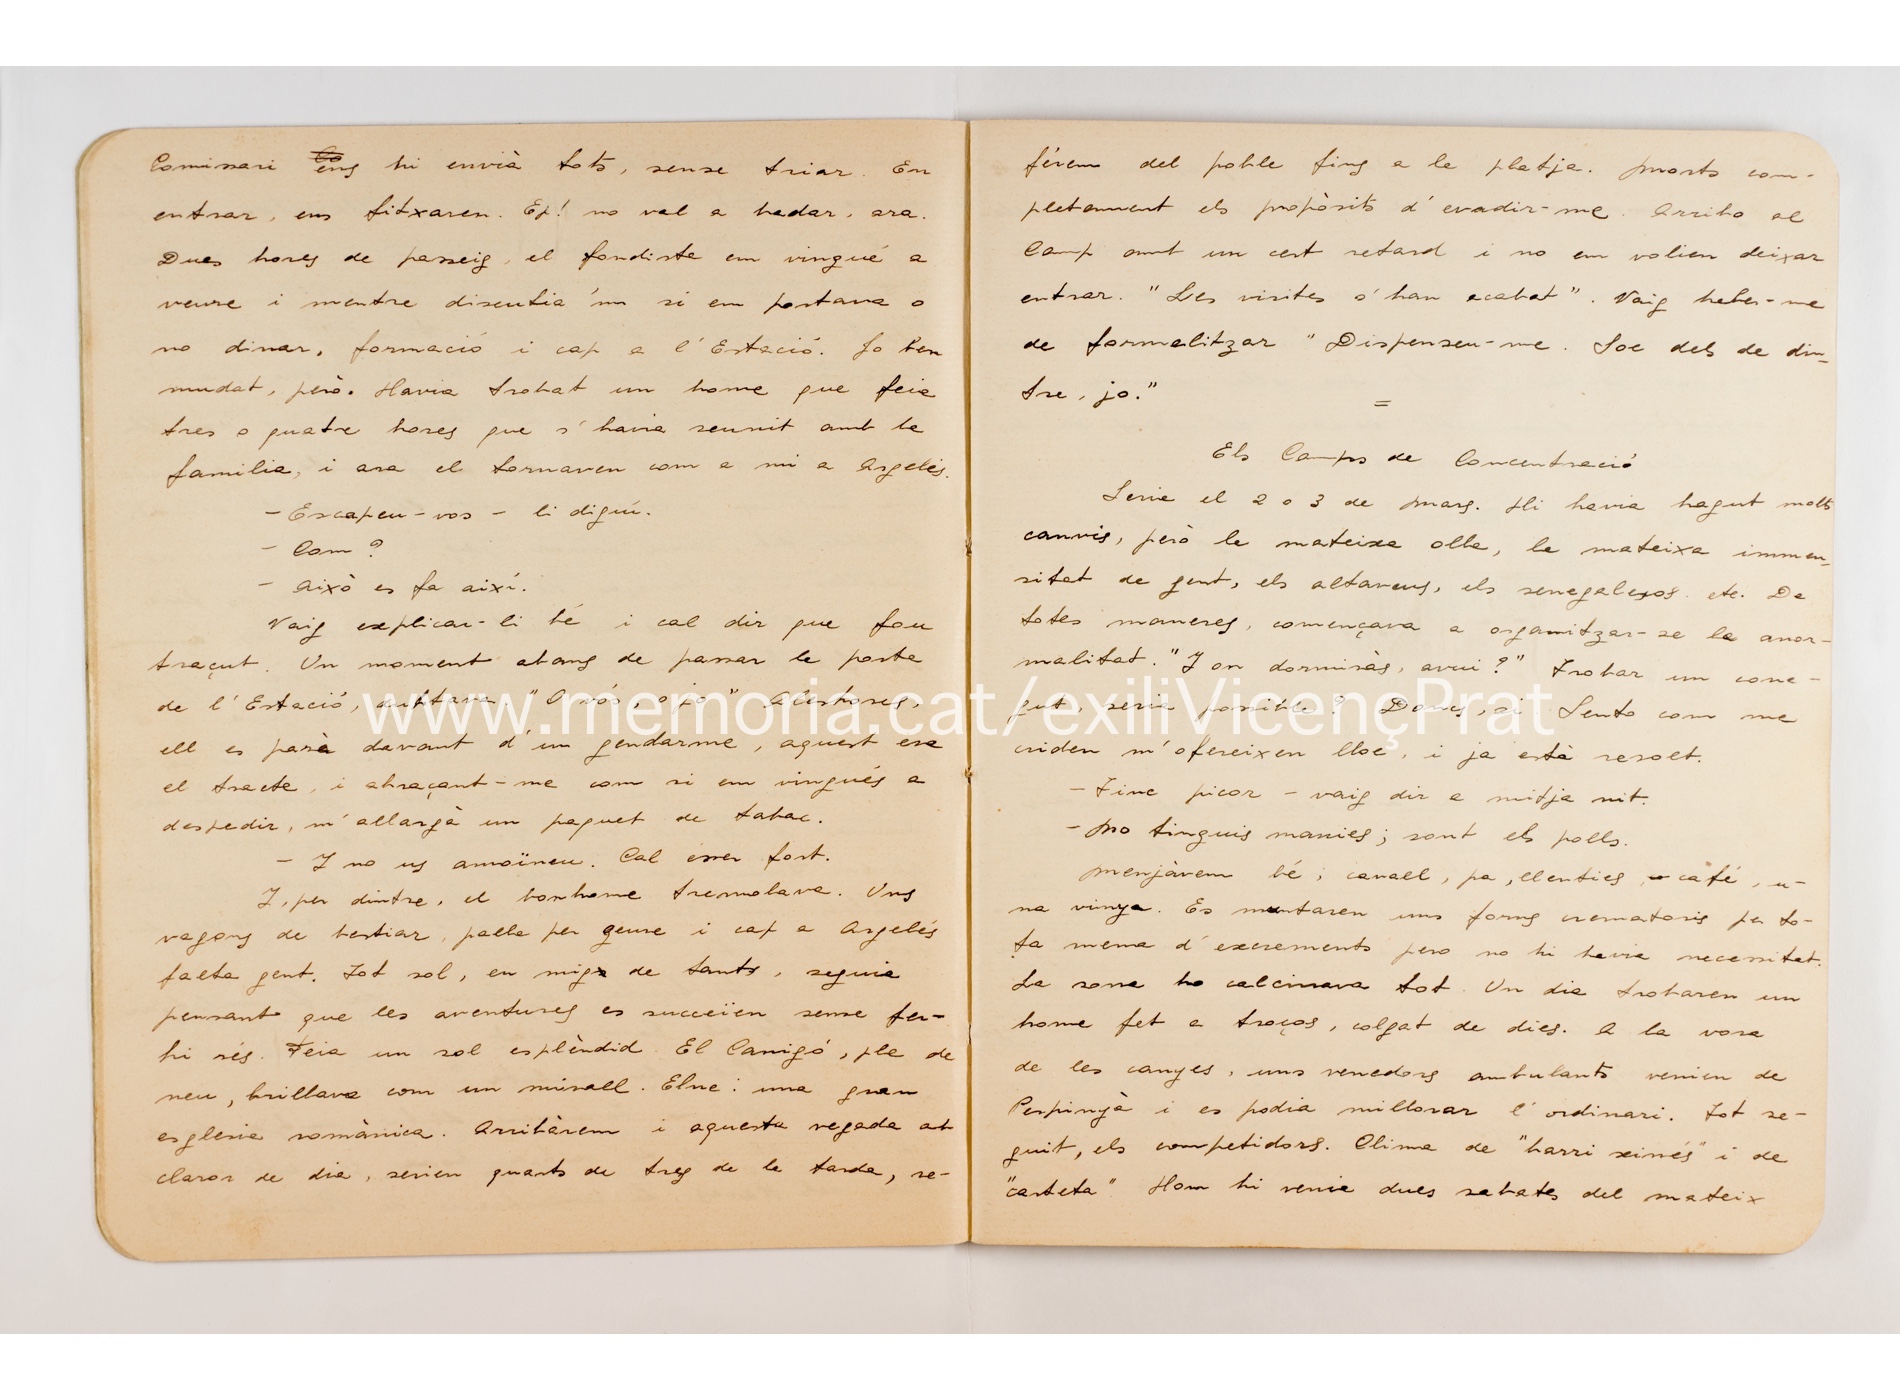 Comissari ens hi envià tots, sense triar. En
entrar, ens fitxaren. Ep! no val a badar, ara.
Dues hores de passeig, el fondista em vingué a
veure i mentre discutia'm si em portava o
no dinar, formació i cap a l'Estació. Jo ben
mudat, però. Havia trobat un home que feia
tres o quatre hores que s'havia reunit amb la
familia, i ara el tornaven com a mi a Argelés.
- Escapeu-vos - li diguí.
- Com?
- Això es fa així.
Vaig explicar-li bé i cal dir que fou
traçut. Un moment abans de passar la porta
de l'Estació, dubtava. "O vós, o jo" Aleshores,
ell es parà davant d'un gendarme, aquest era
el tracte, i abraçant-me com si em vingués a
despedir, m'allargà un paquet de tabac.
- I no us amoïneu. Cal ésser fort.
I, per dintre, el bonhome tremolava. Uns
vagons de bestiar, palla per geure i cap a Argelés
falta gent. Tot sol, en mig de tants, seguia
pensant que les aventures es succeïen sense fer-
hi rés. Feia un sol esplèndid. El Canigó, ple de
neu, brillava com un mirall. Elne: una gran
esglesia romànica. Arribàrem i aquesta vegada at
claror de dia, serien quarts de tres de la tarda, se-
férem del poble fins a la platja. Morts com-
pletament els propòsits d'evadir-me. Arribo al
Camp amb un cert retard i no em volien deixar
entrar. "Les visites s'han acabat". Vaig haber-me
de formalitzar "Dispenseu-me. Soc dels de din-
tre, jo."
=
Els Camps de Concentració
Seria el 2 o 3 de Març. Hi havia hagut molts
canvis, però la mateixa olla, la mateixa immen-
sitat de gent, els altaveus, els senegalesos. etc. De
totes maneres, començava a organitzar-se la anor-
malitat. "I on dormiràs, avui?" Trobar un cone-
gut, seria possible? Doncs, sí. Sento com me
criden m'ofereixen lloc, i ja està resolt.
- Tinc picor - vaig dir a mitja nit.
- No tinguis manies; sont els polls.
Menjàvem bé; cavall, pa, llenties, café, u-
na vinya. Es muntaren uns forns crematoris per to-
ta mena d'excrements pero no hi havia necessitat.
La sorra ho calcinava tot. Un dia trobaren un
home fet a troços, colgat de dies. A la vora
de les canyes, uns venedors ambulants venien de
Perpinyà i es podia millorar l'ordinari. Tot se-
guit, els competidors. Clima de "barri xinés" i de
"carteta" Hom hi venia dues sabates del mateix
www.memoria.cat/exiliVicençPrat